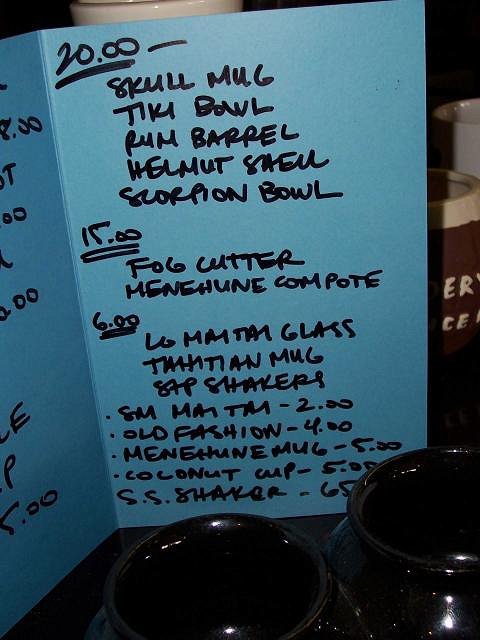 8.00
.00
20.00 —
SKULL MUG
TIKI BOWL
RUM BARREL
HELMUT SHELL
SCORPION BOWL
15.00
FOG CUTTER
MENEHUNE COMPOTE
6.00
LG MAI TAI GLASS
TAHITIAN MUG
S&P SHAKERS
· SM MAI TAI - 2.00
· OLD FASHION - 4.00
· MENEHUNE MUG - 5.00
· COCONUT CUP - 5.00
S.S. SHAKER - 65
5.00